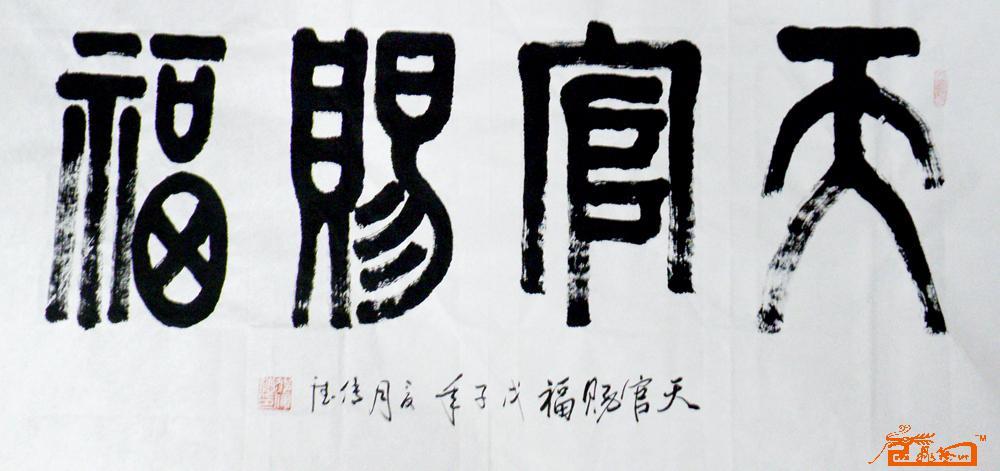 天官賜福
天官赐福 戊子年夏月